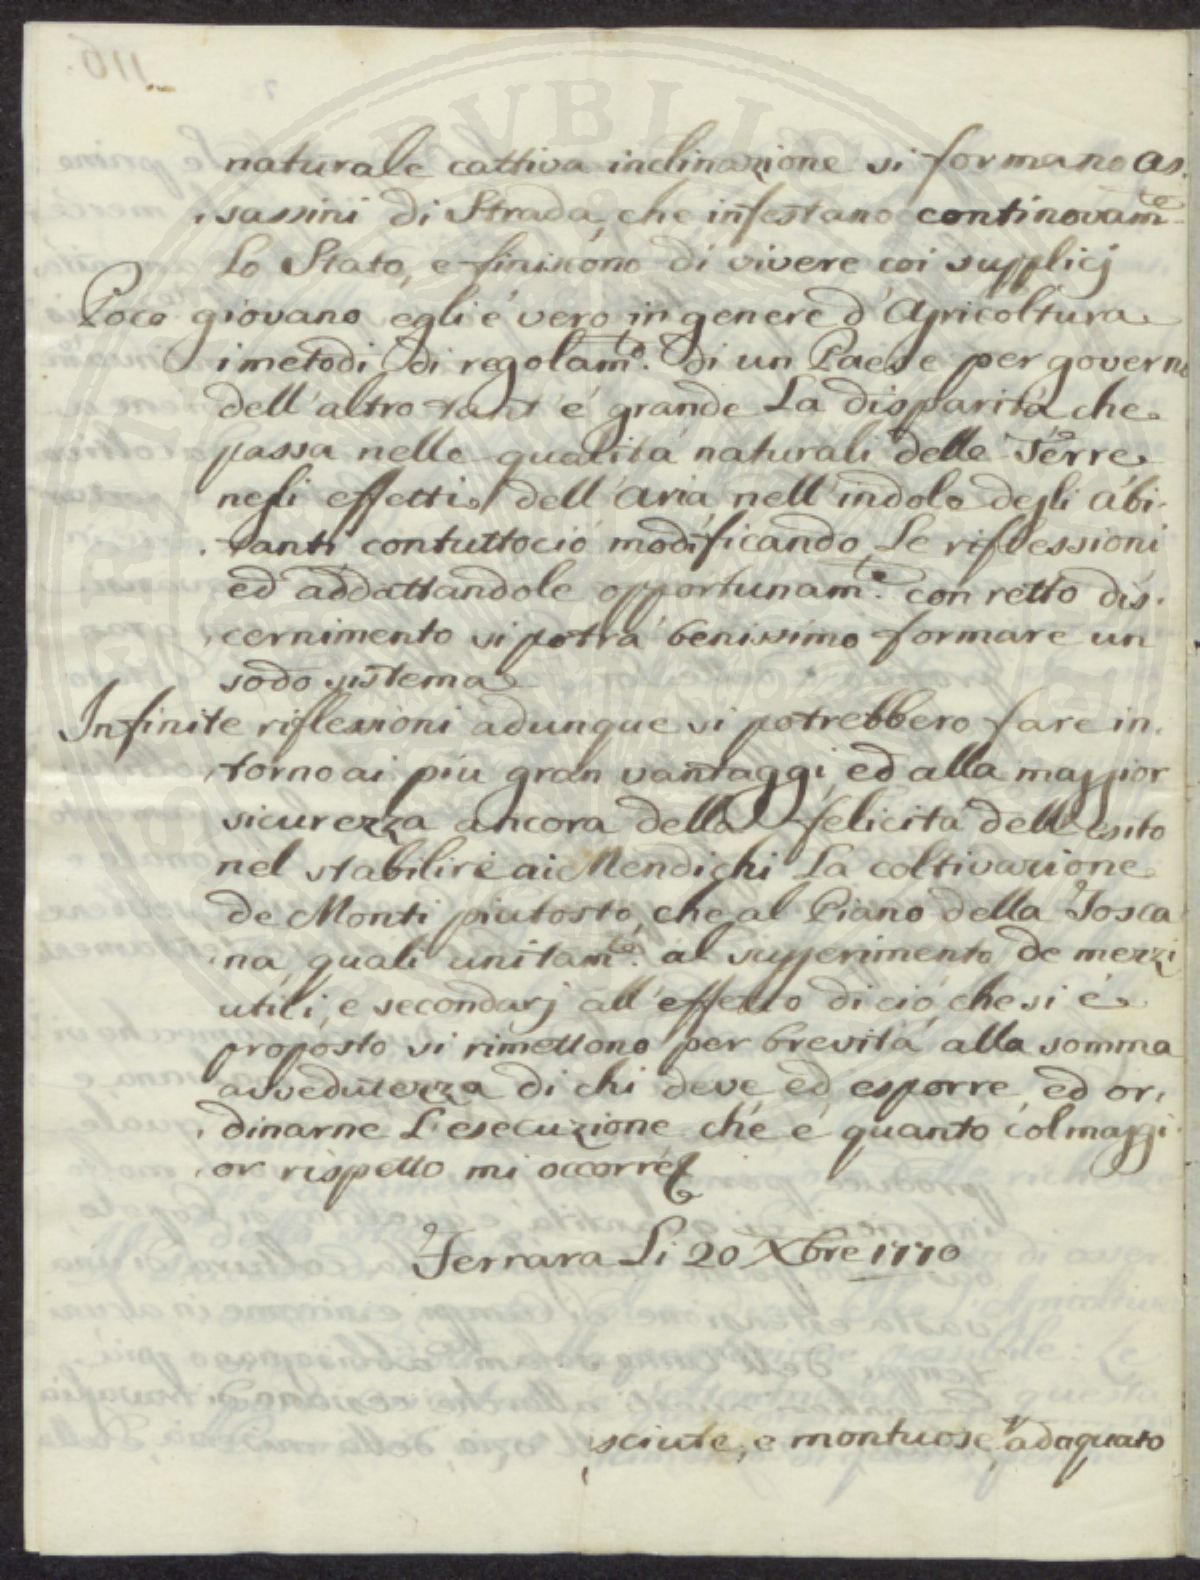 naturale cattiva inclinazione si formano as,
,sassini di Strada, che infestano continovam.te
Lo Stato, e finiscono di vivere coi supplicj
Poco giovano egli é vero in genere d'Agricoltura
i metodi di regolam.to di un Paese per governo
dell'altro tant'é grande La disparitá che
passa nelle qualitá naturali delle Terre
negli effetti dell'Aria nell'indole degli abi,
,tanti contuttoció modificando Le riflessioni
ed addattandole opportunam.te con retto dis,
,cernimento si potrá benissimo formare un
sodo sistema
Infinite riflessioni adunque si potrebbero fare in,
,torno ai piu gran vantaggi, ed alla maggior
sicurezza ancora della felicitá dell'esito
nel stabilire ai Mendichi La coltivazione
de Monti piutosto, che al Piano della Tosca
,na, quali unitam.te al suggerimento de mezzi
utili, e secondarj all'effetto di ció, che si é
proposto si rimettono per brevitá alla somma
avvedutezza di chi deve, ed esporre, ed or,
,dinarne L'esecuzione che é quanto col maggi
,or rispetto mi occorre
Ferrara Li 20 Xbre 1770
,sciute, e montuose, adaquato